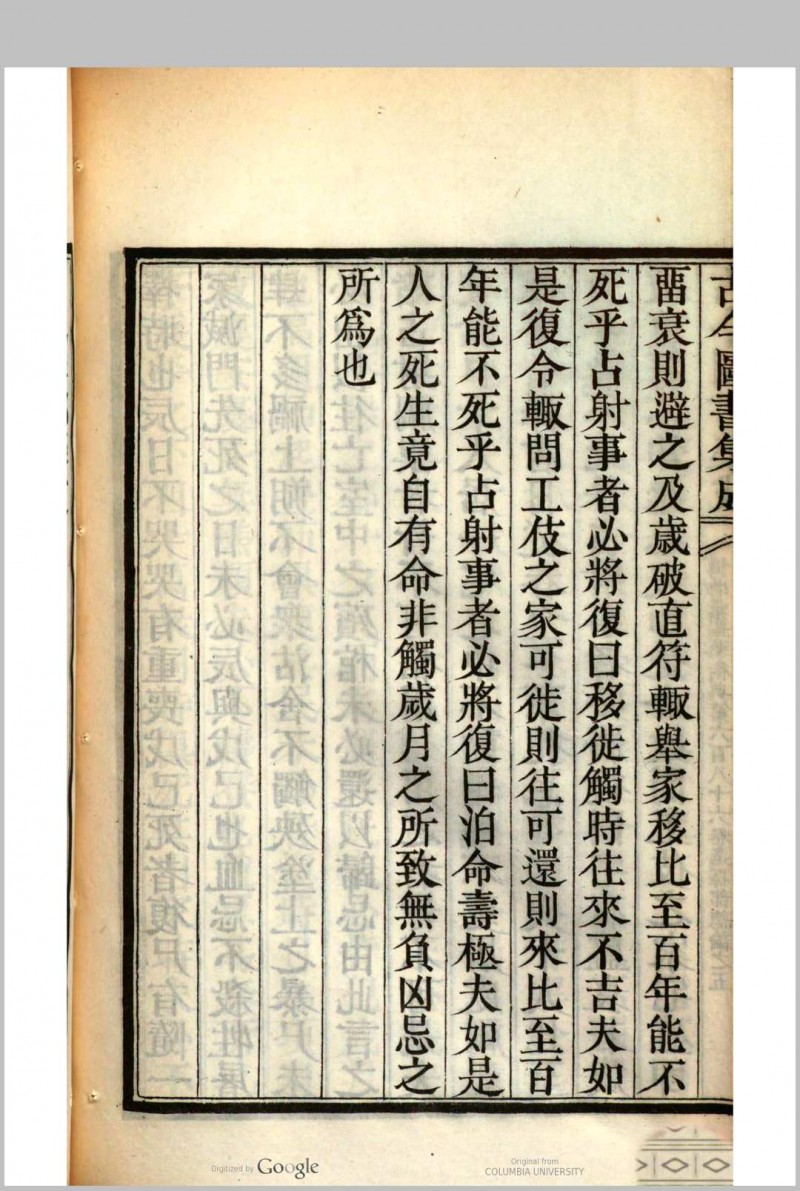 古今圖書集成
畱衰則避之及歲破直符輙舉家移比至百年能不
死乎占射事者必將復曰移徙觸時往來不吉夫如
是復令輙問工伎之家可徙則往可還則來比至百
年能不死乎占射事者必將復曰泊命壽極夫如是
人之死生竟自有命非觸歲月之所致無負凶忌之
所爲也
Digitized by Google
Original from
COLUMBIA UNIVERSITY